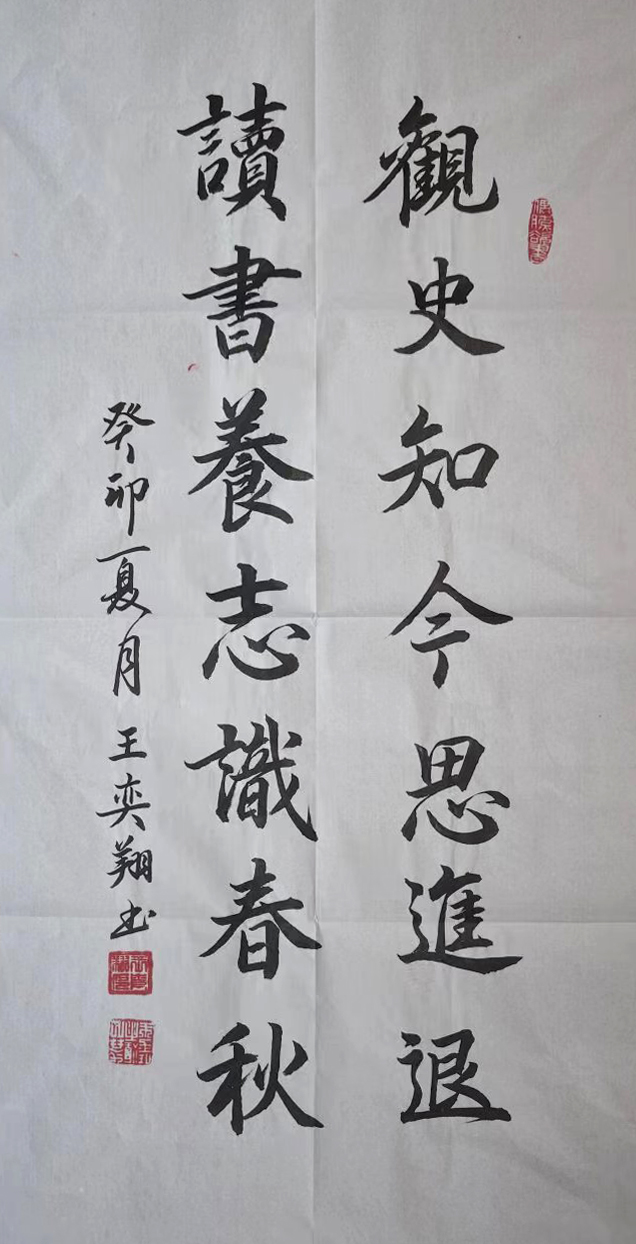 觀史知今思進退
讀書養志識春秋
癸卯夏月王奕翔书